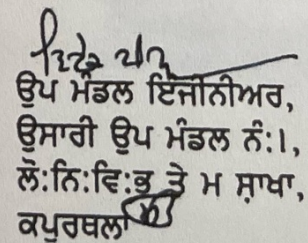 ਉਪ ਮੰਡਲ ਇੰਜੀਨੀਅਰ,
ਉਸਾਰੀ ਉਪ ਮੰਡਲ ਨੰ:1,
ਲੋ:ਨਿ:ਵਿ:ਭ ਤੇ ਮ ਸ਼ਾਖਾ,
ਕਪੂਰਥਲਾ